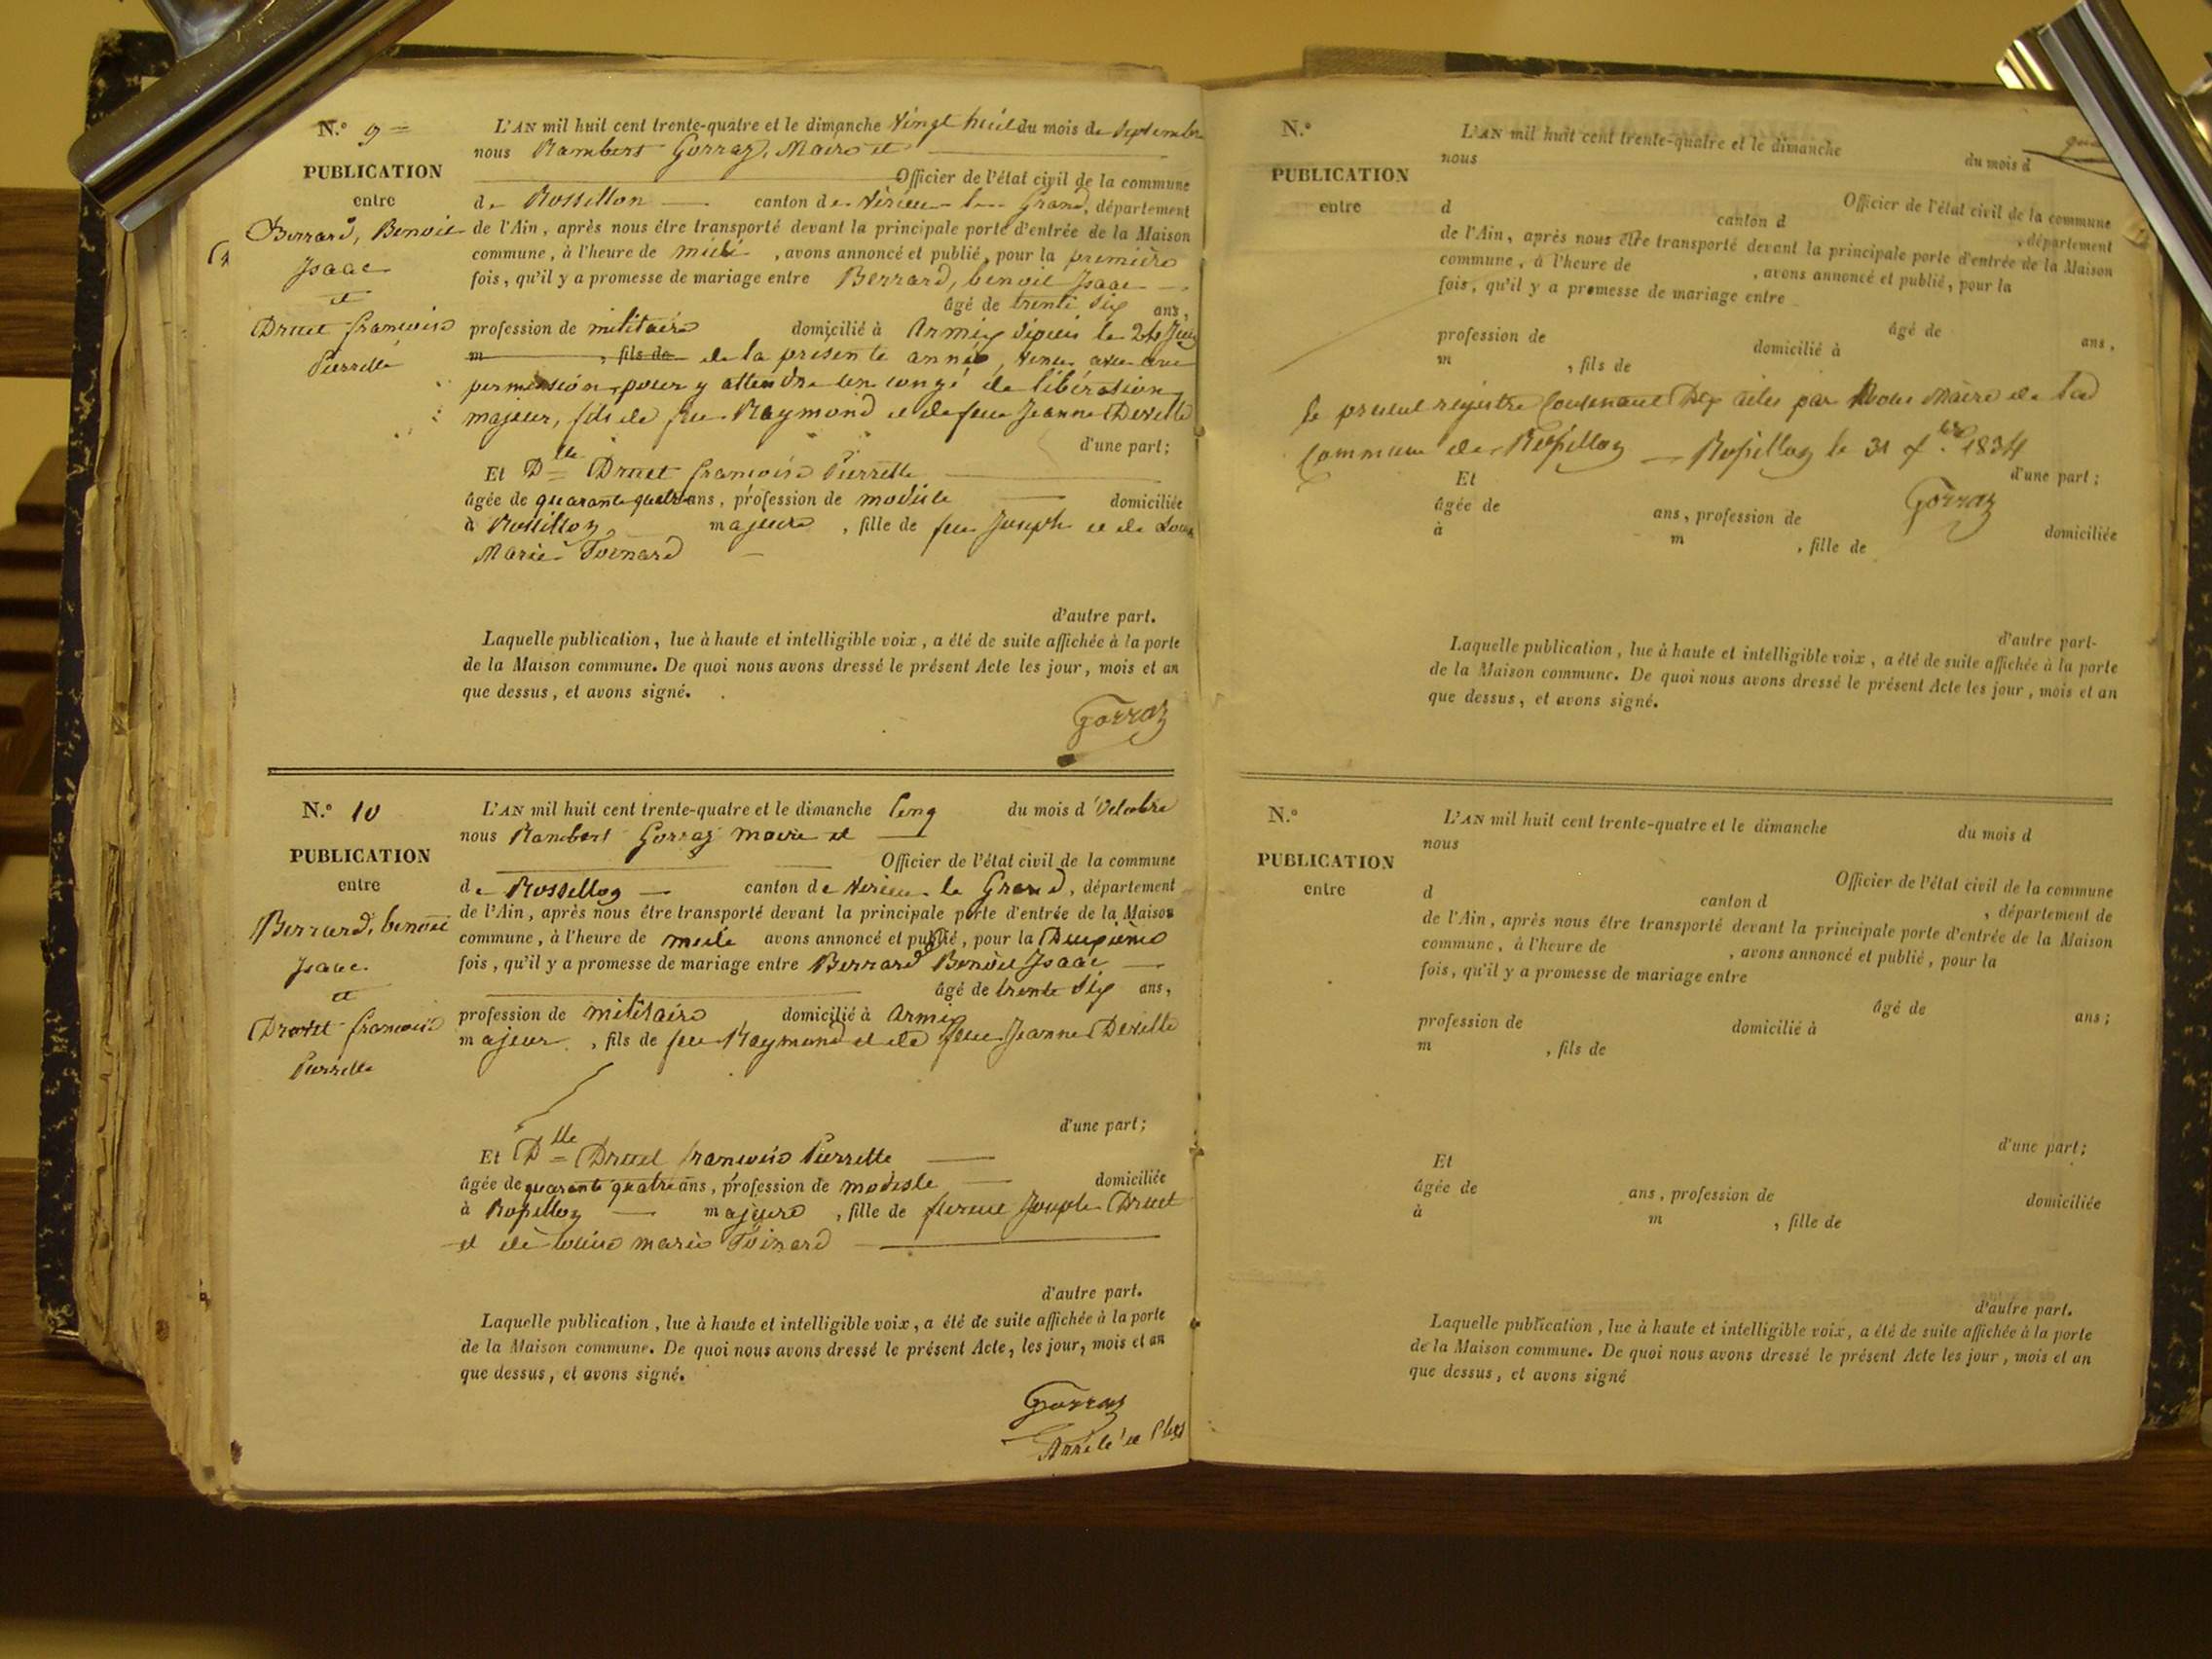 N.° 9
PUBLICATION
entre
Berrard, Benoit
Isaac
et
Druet françoise
Pierrette
L'AN mil huit cent trente-quatre et le dimanche vingt huit du mois de Septembre
nous Rambert Gorraz, Maire et
Officier de l'état civil de la commune
de Rossillon canton de Virieu le Grand, département
de l'Ain, après nous être transporté devant la principale porte d'entrée de la Maison
commune, à l'heure de midi, avons annoncé et publié, pour la première
fois, qu'il y a promesse de mariage entre Berrard, benoit Isaac
âgé de trente six ans,
profession de militaire domicilié à Armix depuis le 24 Juin
m , fils de de la présente année, venu avec une
permission pour y attendre un congé de libération
majeur, fils de feu Raymond et de feue Jeanne Deville
d'une part;
Et Dlle Druet françoise Pierrette
âgée de quarante quatre ans, profession de modiste domiciliée
à Rossillon majeure, fille de feu Joseph et de Louise
Marie Toinard
d'autre part.
Laquelle publication, lue à haute et intelligible voix, a été de suite affichée à la porte
de la Maison commune. De quoi nous avons dressé le présent Acte les jour, mois et an
que dessus, et avons signé.
Gorraz
N.° 10
PUBLICATION
entre
Berrard, benoit
Isaac
et
Druet françoise
Pierrette
L'AN mil huit cent trente-quatre et le dimanche cinq du mois d'Octobre
nous Rambert Gorraz maire et
Officier de l'état civil de la commune
de Rossillon canton de Virieu le Grand, département
de l'Ain, après nous être transporté devant la principale porte d'entrée de la Maison
commune, à l'heure de midi avons annoncé et publié, pour la Deuxième
fois, qu'il y a promesse de mariage entre Berrard Benoit Isaac
âgé de trente six ans,
profession de militaire domicilié à Armix
majeur, fils de feu Raymond et de feue Jeanne Deville
d'une part;
Et Dlle Druet françoise Pierrette
âgée de quarante quatre ans, profession de modiste domiciliée
à Rossillon majeure, fille de Joseph Druet
et de louise marie Toinard
d'autre part.
Laquelle publication, lue à haute et intelligible voix, a été de suite affichée à la porte
de la Maison commune. De quoi nous avons dressé le présent Acte, les jour, mois et an
que dessus, et avons signé.
Gorraz
Arrêté et
N.°
PUBLICATION
entre
L'AN mil huit cent trente-quatre et le dimanche du mois d
nous
Officier de l'état civil de la commune
d canton d , département
de l'Ain, après nous être transporté devant la principale porte d'entrée de la Maison
commune, à l'heure de , avons annoncé et publié, pour la
fois, qu'il y a promesse de mariage entre
âgé de ans,
profession de domicilié à
m , fils de
le présent registre Contenant Dix actes par Nous Maire de la
Commune de Rossillon Rossillon le 31 Xbre 1834
d'une part;
Et
Gorraz
âgée de ans, profession de domiciliée
à m , fille de
d'autre part.
Laquelle publication, lue à haute et intelligible voix, a été de suite affichée à la porte
de la Maison commune. De quoi nous avons dressé le présent Acte les jour, mois et an
que dessus, et avons signé.
N.°
PUBLICATION
entre
L'AN mil huit cent trente-quatre et le dimanche du mois d
nous
Officier de l'état civil de la commune
d canton d , département de
de l'Ain, après nous être transporté devant la principale porte d'entrée de la Maison
commune, à l'heure de , avons annoncé et publié, pour la
fois, qu'il y a promesse de mariage entre
âgé de ans;
profession de domicilié à
m , fils de
d'une part;
Et
âgée de ans, profession de domiciliée
à m , fille de
d'autre part.
Laquelle publication, lue à haute et intelligible voix, a été de suite affichée à la porte
de la Maison commune. De quoi nous avons dressé le présent Acte les jour, mois et an
que dessus, et avons signé